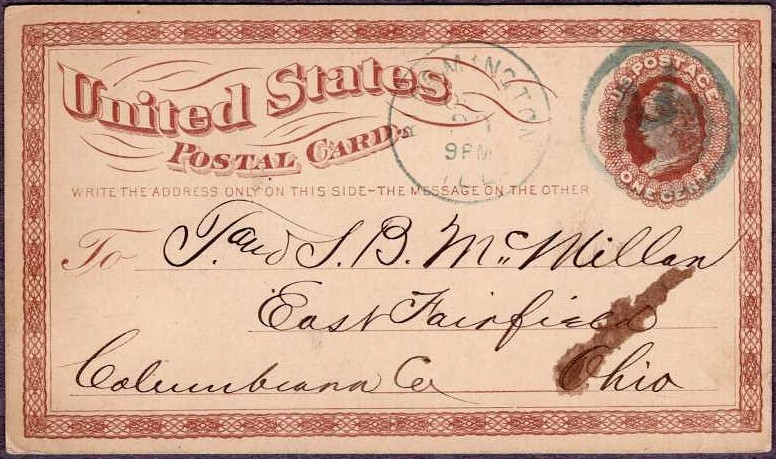 United States
POSTAL CARD.
WRITE THE ADDRESS ONLY ON THIS SIDE-THE MESSAGE ON THE OTHER
MINGTON
9PM
ILL.
U.S. POSTAGE
ONE CENT
To J. and J. B. McMillan
East Fairfield
Columbiana Co Ohio